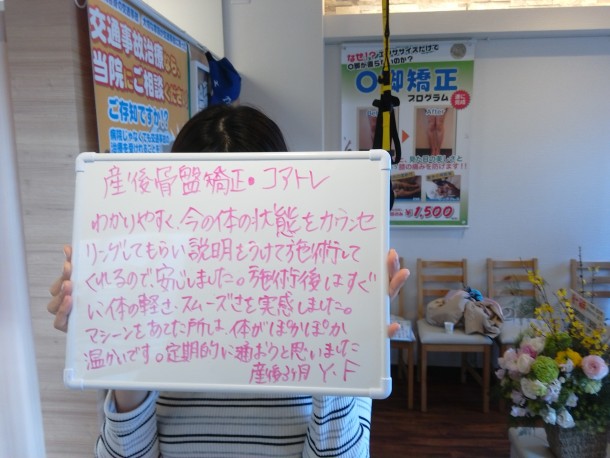 交通事故治療なら、
当院にご相談ください
ご存知ですか!?
なぜ!?
O脚矯正
プログラム
¥1,500
産後骨盤矯正・コアトレ
わかりやすく、今の体の状態をカウンセ
リングしてもらい説明をうけて施術して
くれるので、安心しました。施術後はすぐ
に体の軽さ、スムーズさを実感しました。
マシーンをあてた所は、体がぽかぽか
温かいです。定期的に通おうと思いました
産後3ヶ月 Y.F